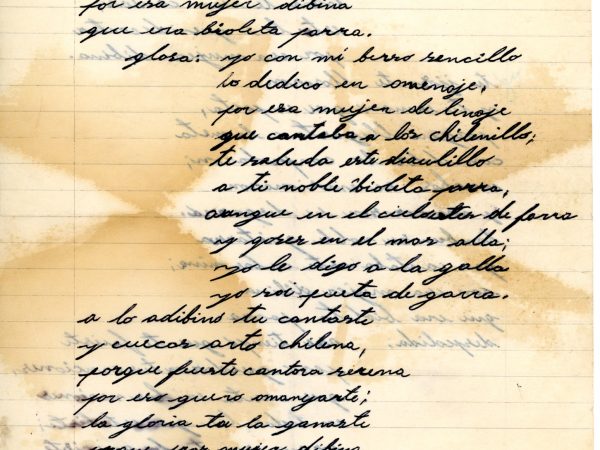 por esa mujer dibina
que era bioleta parra.
glosa: yo con mi berso sencillo
lo dedico en omenoje,
por esa mujer de linoje
que cantaba a los chilenillo;
te saluda este diaulillo
a ti noble bioleta parra,
aunque en el cielo estes de farra
y goses en el mas alla;
yo le digo a la galla
yo soi pueta de garra.
a lo adibino tu cantaste
y cuecas arto chilena,
porque fuerte cantora serena
por eso quero omanyarte;
la gloria ta la ganaste
mujer dibina